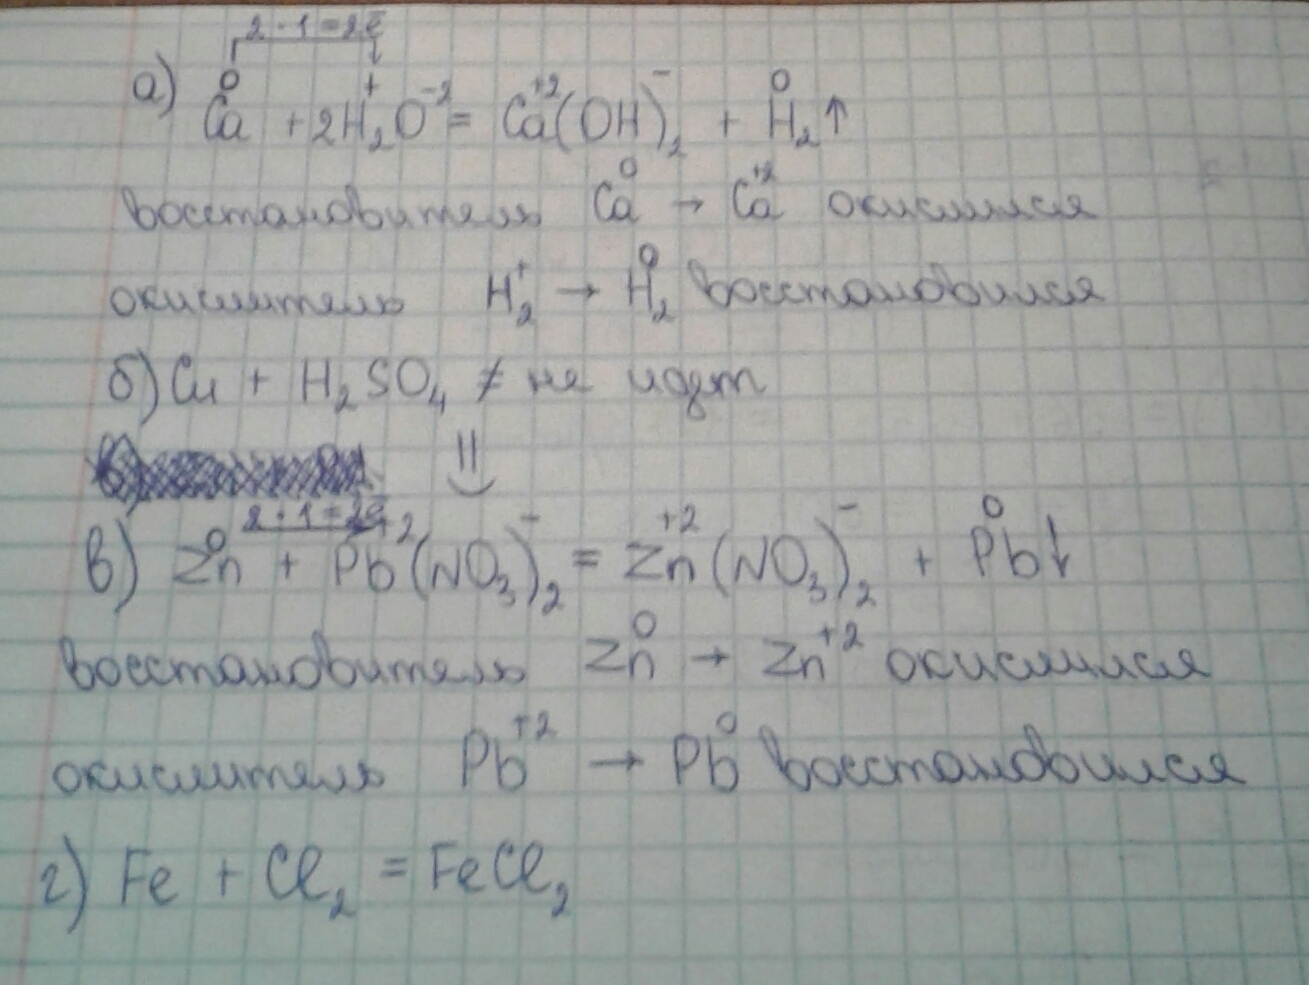 2 · 1 = 2ē
а) Ca⁰ + 2H₂⁺O⁻² = Ca⁺²(OH)₂⁻ + H₂⁰↑
восстановитель Ca⁰ → Ca⁺² окислился
окислитель H₂⁺ → H₂⁰ восстановился
б) Cu + H₂SO₄ ≠ не идет
2 · 1 = 2ē
в) Zn⁰ + Pb⁺²(NO₃)₂⁻ = Zn⁺²(NO₃)₂⁻ + Pb⁰↓
восстановитель Zn⁰ → Zn⁺² окислился
окислитель Pb⁺² → Pb⁰ восстановился
г) Fe + Cl₂ = FeCl₂